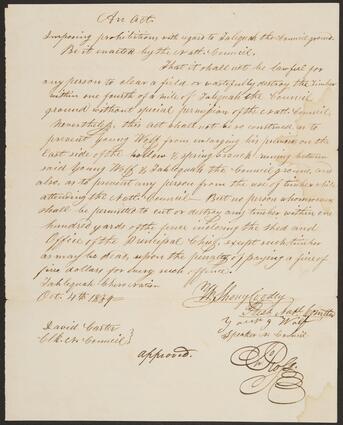 An Act.
Imposing prohibitions with regard to Talequah the Council ground.
Be it enacted by the Natl. Council.
That it shall not be lawful for
any person to clear a field or wastefully destroy the timber
within one fourth of a mile of Talequah the Council
ground without special permission of the Natl. Council,
Nevertheless, this act shall not be so construed, as to
prevent Young Wolf from enlarging his premises on the
East side of the hollow & spring branch running between
said Young Wolf & Tahlequah the Council ground, and
also, as to prevent any person from the use of timber while
attending the Natl. Council – But no person whomsoever
shall be permitted to cut or destroy any timber within one
hundred yards of the fence inclosing the shed and
Office of the Principal Chief, except such timber
as may be dead, upon the penalty of paying a fine of
five dollars for every such offence.
Tahlequah Cher. Nation
Oct. 4th 1839
Young Wolf
Speaker N Council
David Carter
Clk. N Council
approved.
Jno Ross